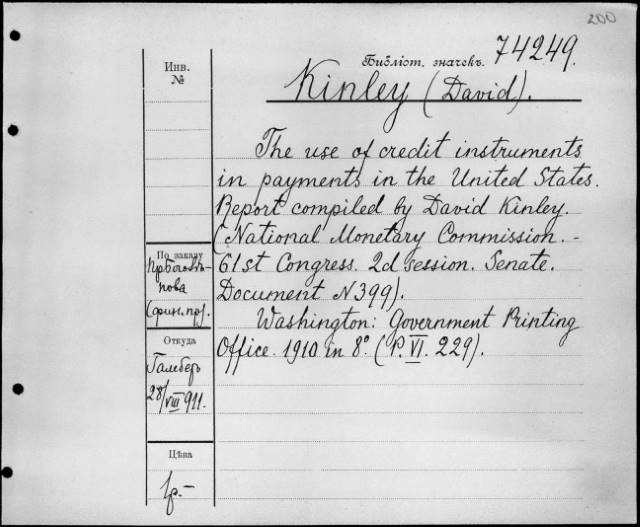 200
Библіот. значекъ. 74249.
Kinley (David).
The use of credit instruments
in payments in the United States.
Report compiled by David Kinley.
(National Monetary Commission. -
61st Congress. 2d session. Senate.
Document N 399).
Washington: Government Printing
Office. 1910 in 8º (P. VI. 229).
Инв.
№
По заказу
(фин. пр).
Откуда
28/VIII 911.
Цѣна